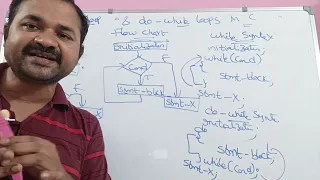 & do-while loops in C
Flow Chart
Initialization
Cond
T
F
F
Stmt-block
Stmt-X
while Syntax
initialization;
while(Cond)
Stmt-block;
Stmt-X;
do-while Synt
initialization;
do
Stmt-block;
while(Cond);
Stmt-X;